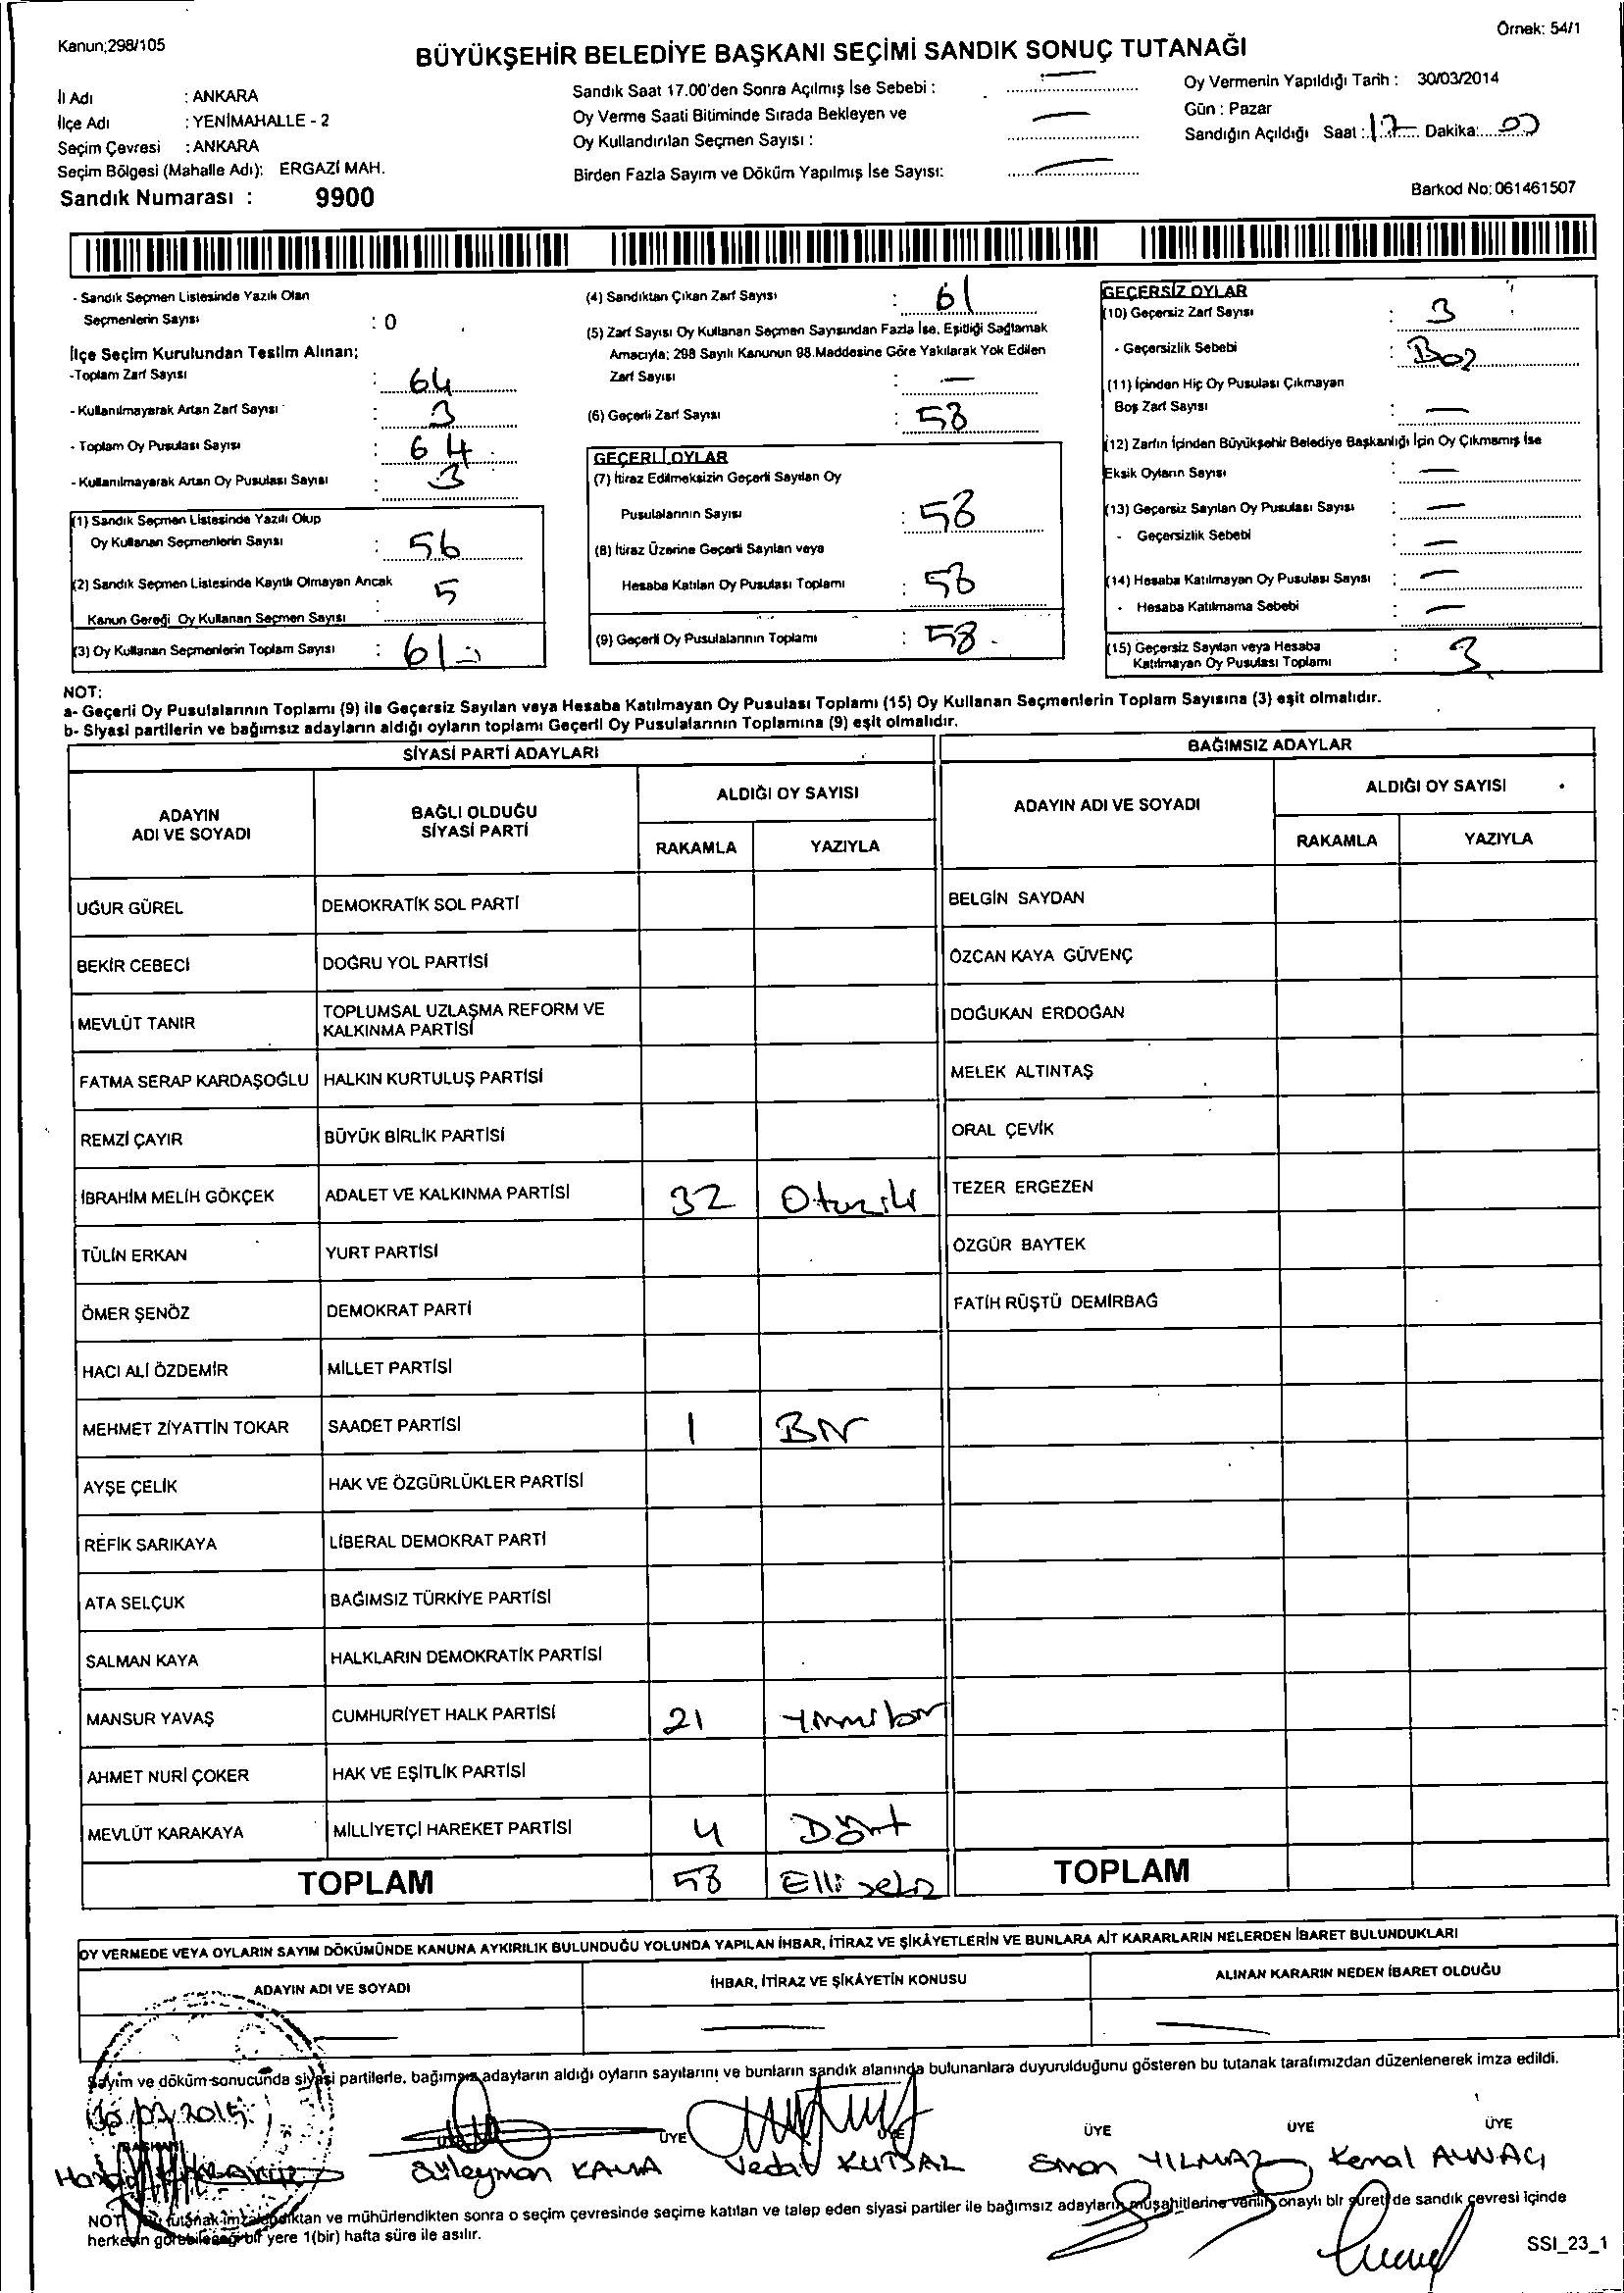 Kanun;298/105
Örnek: 54/1
BÜYÜKŞEHİR BELEDİYE BAŞKANI SEÇİMİ SANDIK SONUÇ TUTANAĞI
İl Adı : ANKARA
İlçe Adı : YENİMAHALLE - 2
Seçim Çevresi : ANKARA
Seçim Bölgesi (Mahalle Adı): ERGAZİ MAH.
Sandık Numarası : 9900
Sandık Saat 17.00'den Sonra Açılmış İse Sebebi : —
Oy Verme Saati Bitiminde Sırada Bekleyen ve
Oy Kullandırılan Seçmen Sayısı : —
Birden Fazla Sayım ve Döküm Yapılmış İse Sayısı: —
Oy Vermenin Yapıldığı Tarih : 30/03/2014
Gün : Pazar
Sandığın Açıldığı Saat : 17 Dakika: 00
Barkod No: 061461507
- Sandık Seçmen Listesinde Yazılı Olan
Seçmenlerin Sayısı : 0
İlçe Seçim Kurulundan Teslim Alınan;
-Toplam Zarf Sayısı : 64
- Kullanılmayarak Artan Zarf Sayısı : 3
- Toplam Oy Pusulası Sayısı : 64
- Kullanılmayarak Artan Oy Pusulası Sayısı : 3
(1) Sandık Seçmen Listesinde Yazılı Olup
Oy Kullanan Seçmenlerin Sayısı : 56
(2) Sandık Seçmen Listesinde Kayıtlı Olmayan Ancak
Kanun Gereği Oy Kullanan Seçmen Sayısı : 5
(3) Oy Kullanan Seçmenlerin Toplam Sayısı : 61
(4) Sandıktan Çıkan Zarf Sayısı : 61
(5) Zarf Sayısı Oy Kullanan Seçmen Sayısından Fazla İse, Eşitliği Sağlamak
Amacıyla; 298 Sayılı Kanunun 98.Maddesine Göre Yakılarak Yok Edilen
Zarf Sayısı : —
(6) Geçerli Zarf Sayısı : 58
GEÇERLİ OYLAR
(7) İtiraz Edilmeksizin Geçerli Sayılan Oy
Pusulalarının Sayısı : 58
(8) İtiraz Üzerine Geçerli Sayılan veya
Hesaba Katılan Oy Pusulası Toplamı : 58
(9) Geçerli Oy Pusulalarının Toplamı : 58
GEÇERSİZ OYLAR
(10) Geçersiz Zarf Sayısı : 3
- Geçersizlik Sebebi : Boş
(11) İçinden Hiç Oy Pusulası Çıkmayan
Boş Zarf Sayısı : —
(12) Zarfın İçinden Büyükşehir Belediye Başkanlığı İçin Oy Çıkmamış İse
Eksik Oyların Sayısı : —
(13) Geçersiz Sayılan Oy Pusulası Sayısı : —
- Geçersizlik Sebebi : —
(14) Hesaba Katılmayan Oy Pusulası Sayısı : —
- Hesaba Katılmama Sebebi : —
(15) Geçersiz Sayılan veya Hesaba
Katılmayan Oy Pusulası Toplamı : 3
NOT:
a- Geçerli Oy Pusulalarının Toplamı (9) ile Geçersiz Sayılan veya Hesaba Katılmayan Oy Pusulası Toplamı (15) Oy Kullanan Seçmenlerin Toplam Sayısına (3) eşit olmalıdır.
b- Siyasi partilerin ve bağımsız adayların aldığı oyların toplamı Geçerli Oy Pusulalarının Toplamına (9) eşit olmalıdır.
SİYASİ PARTİ ADAYLARI
ADAYIN ADI VE SOYADI BAĞLI OLDUĞU SİYASİ PARTİ ALDIĞI OY SAYISI RAKAMLA YAZIYLA
UĞUR GÜREL DEMOKRATİK SOL PARTİ
BEKİR CEBECİ DOĞRU YOL PARTİSİ
MEVLÜT TANIR TOPLUMSAL UZLAŞMA REFORM VE KALKINMA PARTİSİ
FATMA SERAP KARDAŞOĞLU HALKIN KURTULUŞ PARTİSİ
REMZİ ÇAYIR BÜYÜK BİRLİK PARTİSİ
İBRAHİM MELİH GÖKÇEK ADALET VE KALKINMA PARTİSİ 32 Otuziki
TÜLİN ERKAN YURT PARTİSİ
ÖMER ŞENÖZ DEMOKRAT PARTİ
HACI ALİ ÖZDEMİR MİLLET PARTİSİ
MEHMET ZİYATTİN TOKAR SAADET PARTİSİ 1 Bir
AYŞE ÇELİK HAK VE ÖZGÜRLÜKLER PARTİSİ
REFİK SARIKAYA LİBERAL DEMOKRAT PARTİ
ATA SELÇUK BAĞIMSIZ TÜRKİYE PARTİSİ
SALMAN KAYA HALKLARIN DEMOKRATİK PARTİSİ
MANSUR YAVAŞ CUMHURİYET HALK PARTİSİ 21 Yirmibir
AHMET NURİ ÇOKER HAK VE EŞİTLİK PARTİSİ
MEVLÜT KARAKAYA MİLLİYETÇİ HAREKET PARTİSİ 4 Dört
TOPLAM 58 Elli sekiz
BAĞIMSIZ ADAYLAR
ADAYIN ADI VE SOYADI ALDIĞI OY SAYISI RAKAMLA YAZIYLA
BELGİN SAYDAN
ÖZCAN KAYA GÜVENÇ
DOĞUKAN ERDOĞAN
MELEK ALTINTAŞ
ORAL ÇEVİK
TEZER ERGEZEN
ÖZGÜR BAYTEK
FATİH RÜŞTÜ DEMİRBAĞ
TOPLAM
OY VERMEDE VEYA OYLARIN SAYIM DÖKÜMÜNDE KANUNA AYKIRILIK BULUNDUĞU YOLUNDA YAPILAN İHBAR, İTİRAZ VE ŞİKÂYETLERİN VE BUNLARA AİT KARARLARIN NELERDEN İBARET BULUNDUKLARI
ADAYIN ADI VE SOYADI İHBAR, İTİRAZ VE ŞİKÂYETİN KONUSU ALINAN KARARIN NEDEN İBARET OLDUĞU
— — —
Sayım ve döküm sonucunda siyasi partilerle, bağımsız adayların aldığı oyların sayılarını ve bunların sandık alanında bulunanlara duyurulduğunu gösteren bu tutanak tarafımızdan düzenlenerek imza edildi.
BAŞKAN ÜYE ÜYE ÜYE ÜYE ÜYE
Süleyman KAYA Vedat KUTSAL YILMAZ Kemal
NOT: Bu tutanak imzalandıktan ve mühürlendikten sonra o seçim çevresinde seçime katılan ve talep eden siyasi partiler ile bağımsız adayların müşahitlerine verilir, onaylı bir sureti de sandık çevresi içinde
herkesin görebileceği bir yere 1(bir) hafta süre ile asılır.
SSI_23_1